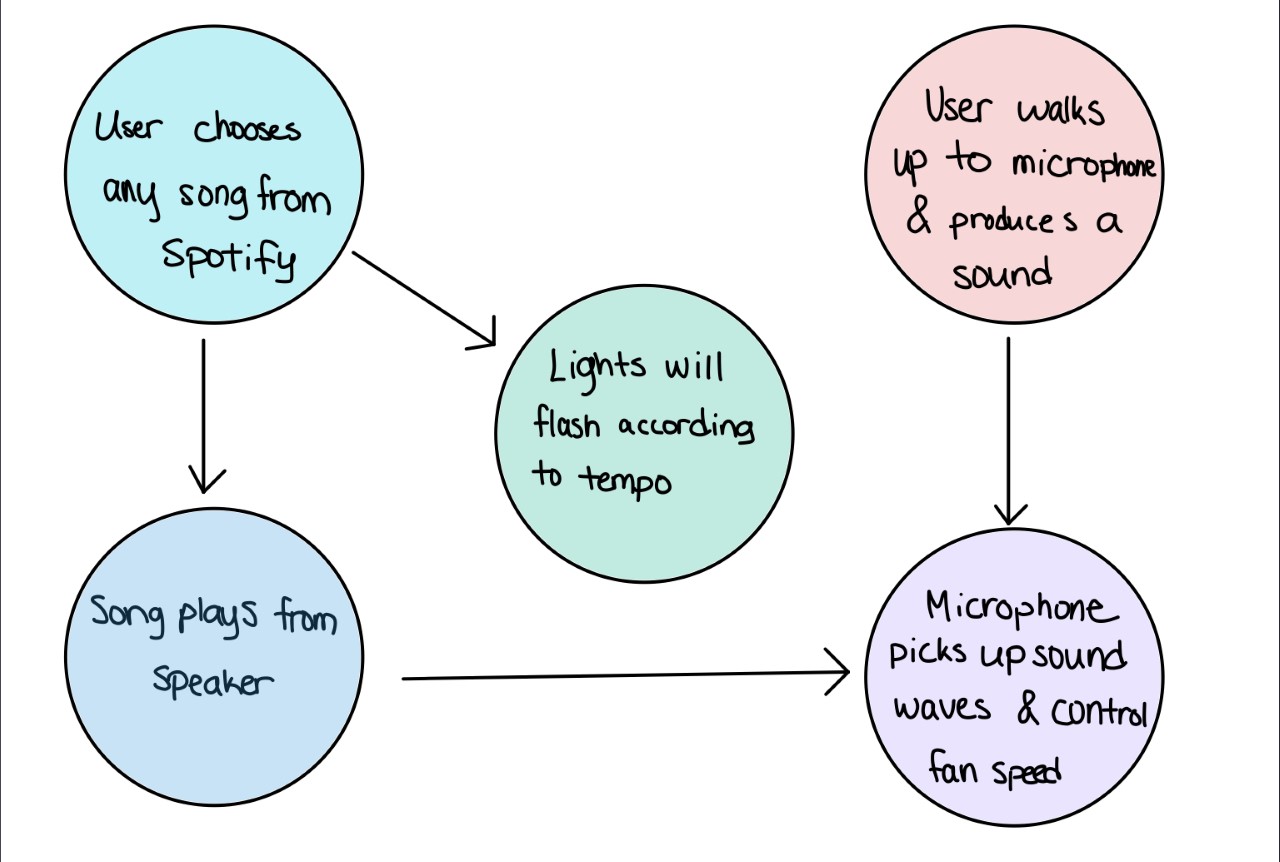 User chooses
any song from
Spotify
User walks
up to microphone
& produces a
sound
Lights will
flash according
to tempo
Song plays from
speaker
Microphone
picks up sound
waves & control
fan speed